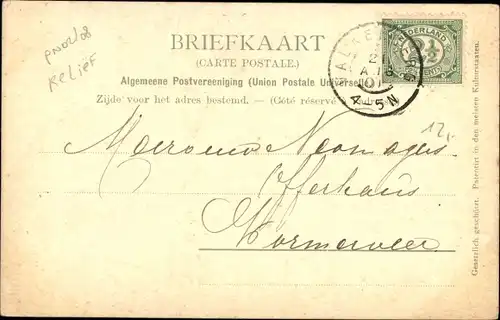 PNOU/08
RELIEF
BRIEFKAART
(CARTE POSTALE.)
Algemeene Postvereeniging (Union Postale Universelle)
Zijde voor het adres bestemd. — (Côté réservé
NEDERLAND
2½
CENT
4-5N
12,-
Mevrouw
Offerhaus
Wormerveer
Gesetzlich geschützt. Patentirt in den meisten Kulturstaaten.